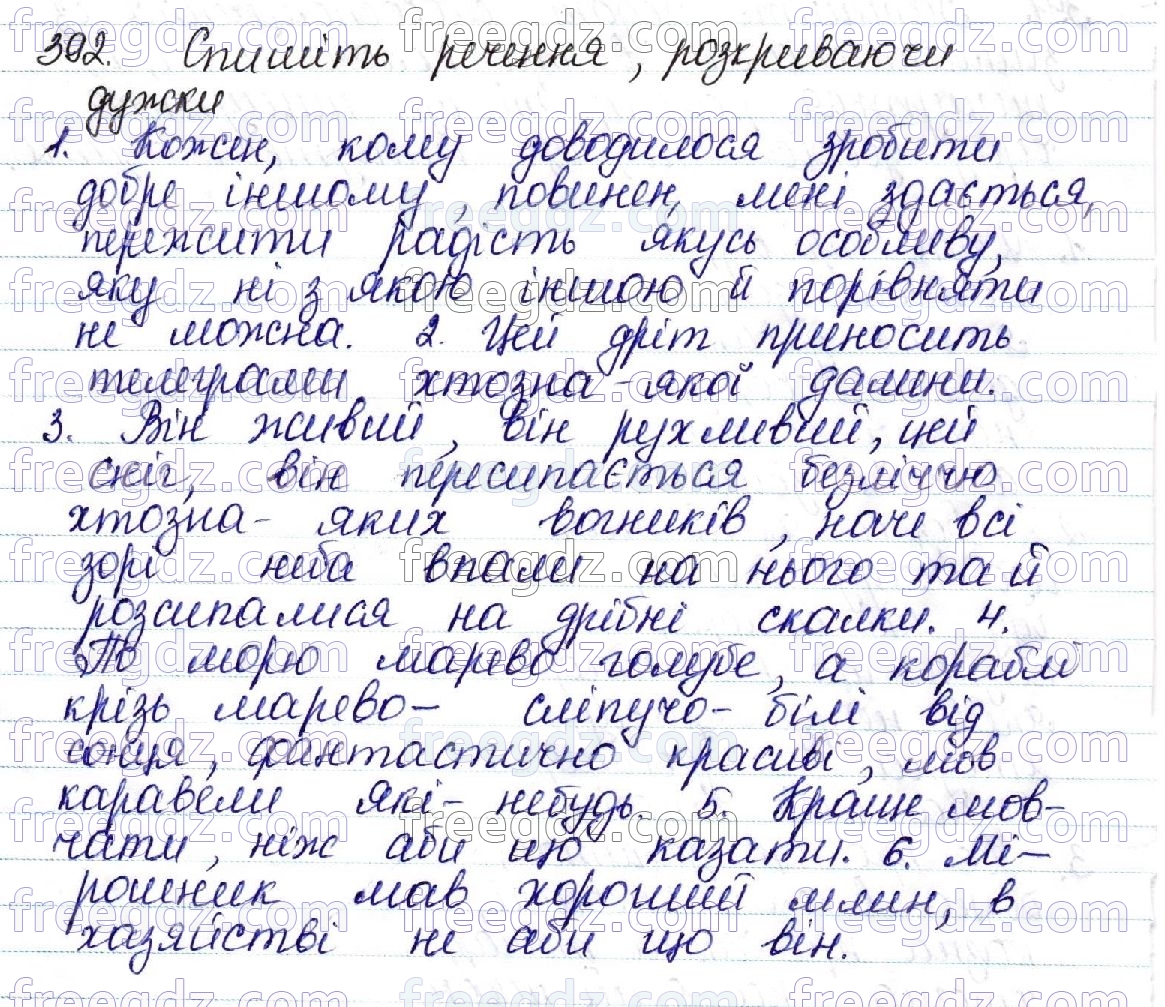 392. Спишіть речення, розкриваючи
дужки
1. Кожен, кому доводилося зробити
добре іншому, повинен, мені здається,
пережити радість якусь особливу,
яку ні з якою іншою й порівняти
не можна. 2. Цей дріт приносить
телеграми хтозна-якої далини.
3. Він живий, він рухливий, цей
сніг, він пересипається безліччю
хтозна- яких вогників, наче всі
зорі неба впали на нього та й
розсипалися на дрібні скалки. 4.
По морю марево голубе, а кораблі
крізь марево- сліпучо- білі від
сонця, фантастично красиві, мов
каравели які- небудь. 5. Краще мов-
чати, ніж аби що казати. 6. Мі-
рошник мав хороший млин, в
хазяйстві не аби що він.
freegdz.com